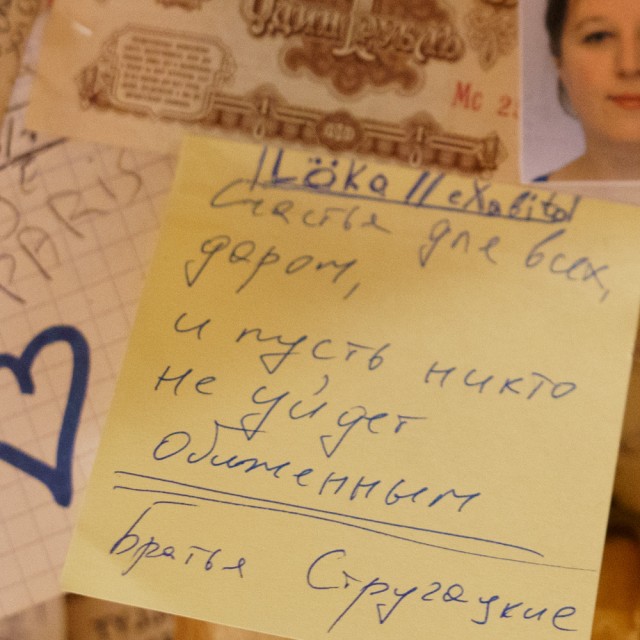 Один Рубль
Мс 2
PARIS
Löka // eXabital
Счастья для всех,
даром,
и пусть никто
не уйдет
обиженным
Братья Стругацкие